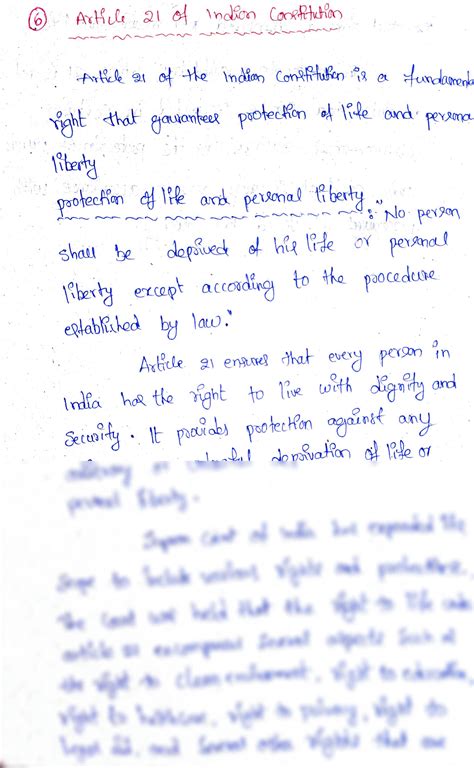 6 Article 21 of Indian Constitution
Article 21 of the Indian Constitution is a fundamenta
right that gaurantees protection of life and persona
liberty
protection of life and personal liberty :- "No person
shall be deprived of his life or personal
liberty except according to the procedure
established by law."
Article 21 ensures that every person in
India has the right to live with dignity and
Security. It provides protection against any
deprivation of life or
personal liberty.
Supreme Court of India has expanded the
Scope to include various rights and
The Court has held that the right to life
article 21 encompass Several aspects Such as
the right to clean environment, right to education,
right to healthcare, right to privacy, right to
legal aid, and Several other rights that are